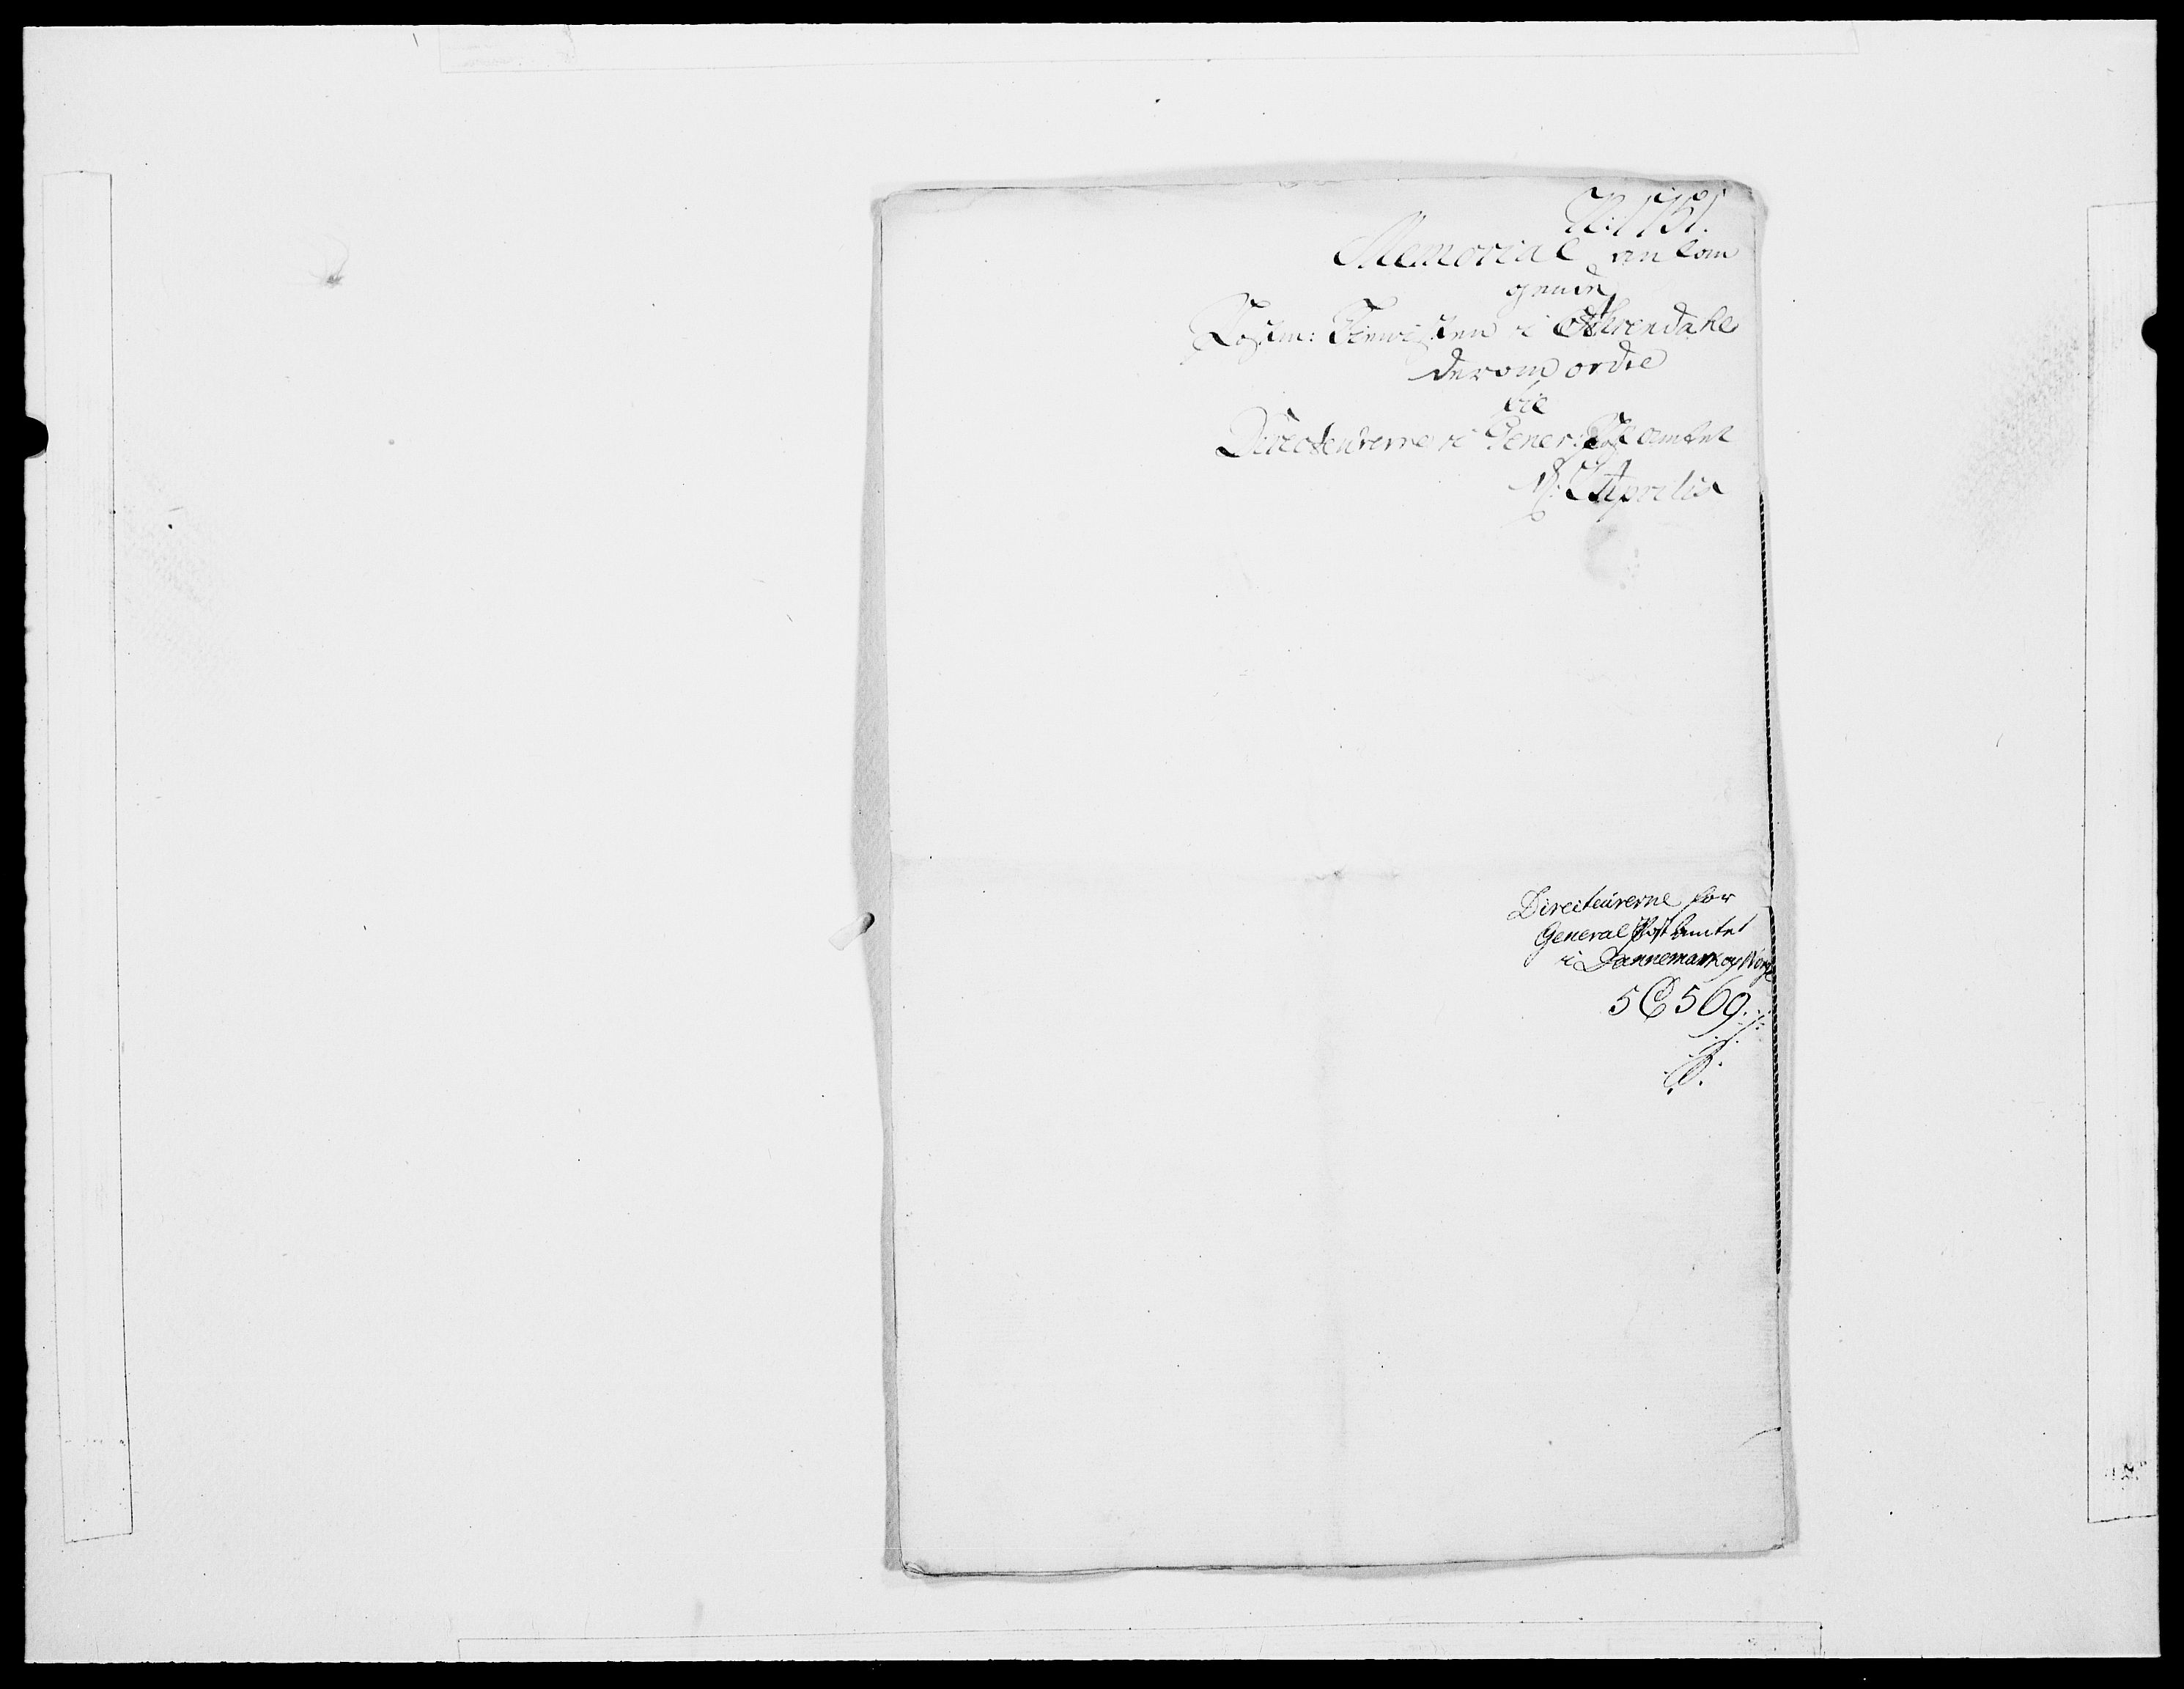 No: 1751.
Memorial ankom
gende
Postm: i Ahrendahl
derom ordre
til
Directeurerne i Gener: Post amtet
d: Aprilis
Directeurerne for
General Post Amtet
i Dannemark og Norge
5 C 569.